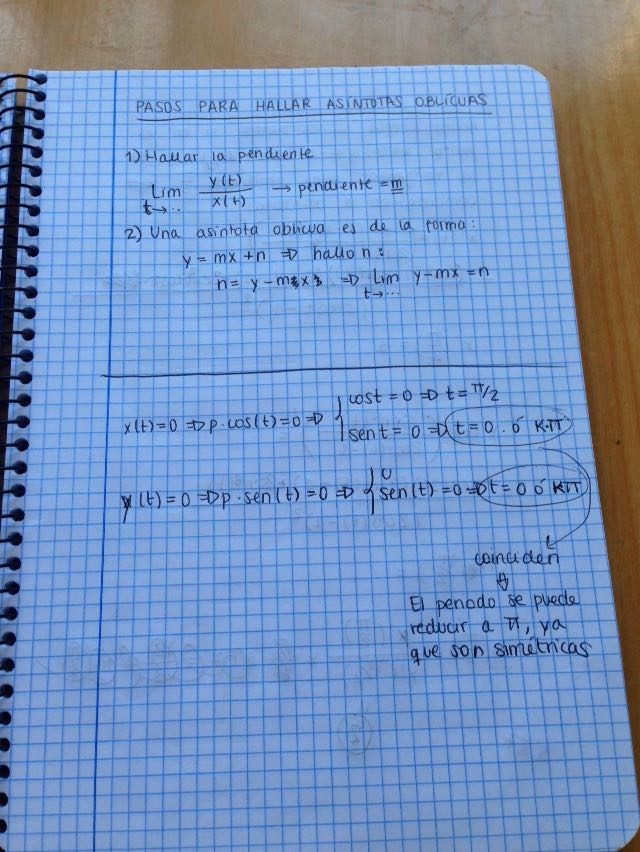 PASOS PARA HALLAR ASÍNTOTAS OBLÍCUAS
1) Hallar la pendiente
Lim y(t)/x(t) → pendiente = m
t→...
2) Una asíntota oblicua es de la forma:
y = mx + n ⇒ hallo n:
n = y - m x ⇒ Lim y - mx = n
t→...
x(t) = 0 ⇒ p · cos(t) = 0 ⇒ { cos t = 0 ⇒ t = π/2
sen t = 0 ⇒ t = 0 . ó K·π
y(t) = 0 ⇒ p · sen(t) = 0 ⇒ { U
sen(t) = 0 ⇒ t = 0 ó Kπ
coinciden
⇓
El periodo se puede
reducir a π, ya
que son simétricas